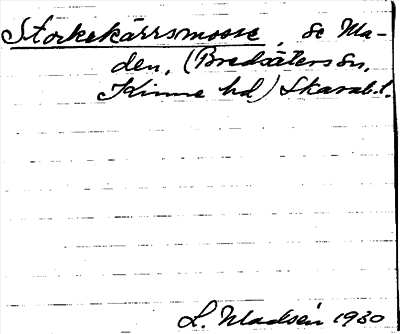 Storkekärrsmosse, se Ma-
den, (Bredsäters sn,
Kinne hd) Skarab.l.
L. Madsén 1930